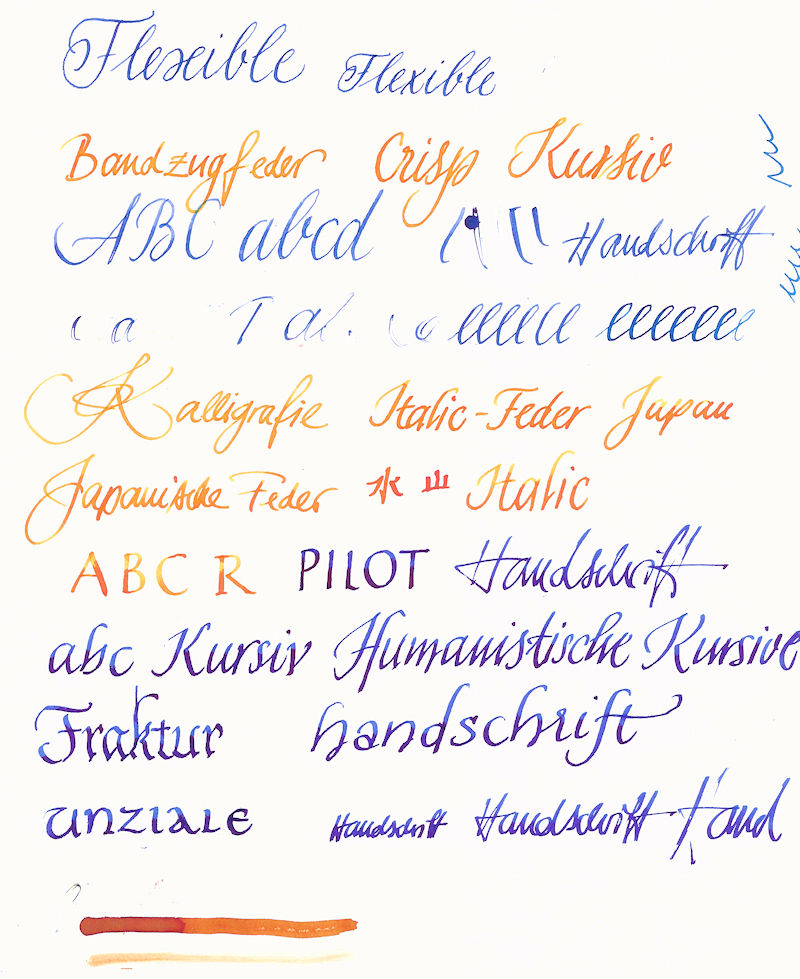 Flexible Flexible
Bandzugfeder Crisp Kursiv
ABC abcd Handschrift
a
Kalligrafie Italic-Feder Japan
Japanische Feder 水 山 Italic
ABC R PILOT Handschrift
abc Kursiv Humanistische Kursive
Fraktur handschrift
UNZIALE Handschrift Handschrift Hand